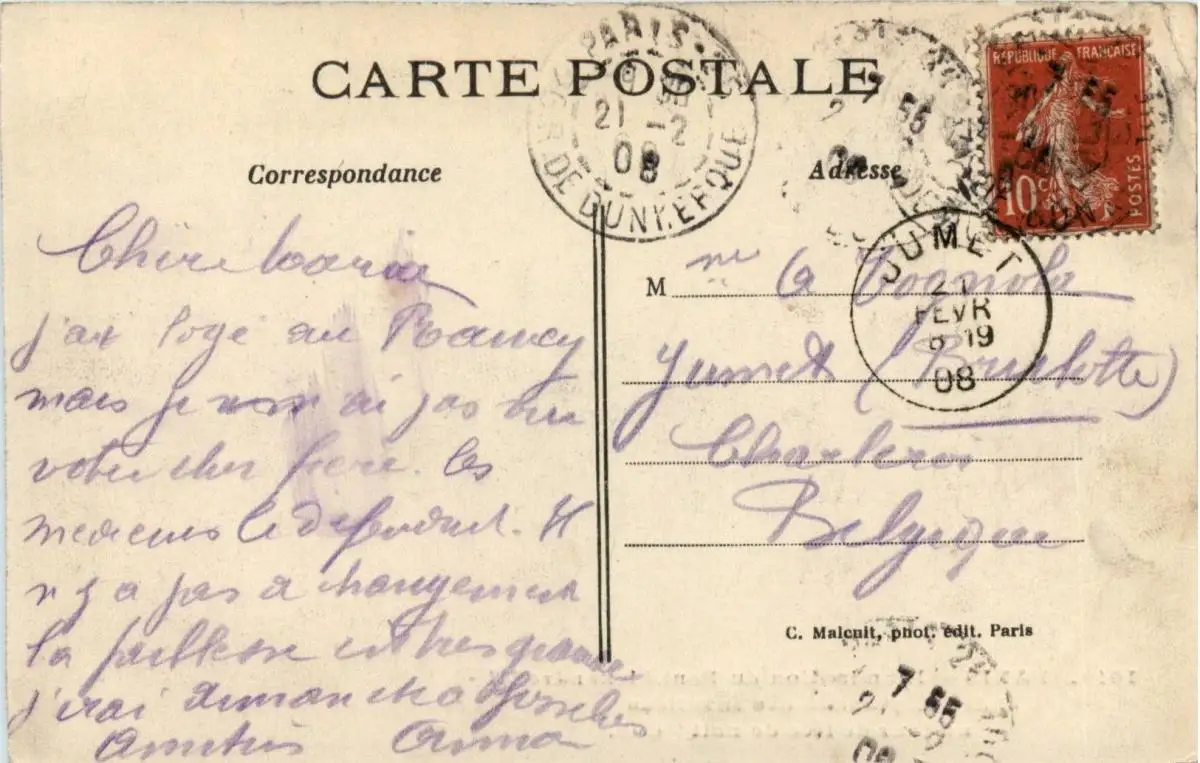 CARTE POSTALE
Correspondance
Adresse
PARIS
21 -2
08
R. DE DUNKERQUE
7 55
RÉPUBLIQUE FRANÇAISE
10 c
POSTES
JUMET
21
FEVR
6-19
08
Chère Maria
j'ai logé au Raincy
mais je n'ai pas vu
votre cher père. les
médecins le défendent. Il
n'y a pas de changement
la faiblesse est très grande.
j'irai dimanche à Gosselies
Amitiés Anna
M me A Tognola
Jumet (Brulotte)
Charleroi
Belgique
C. Malcuit, phot. édit. Paris
7 55